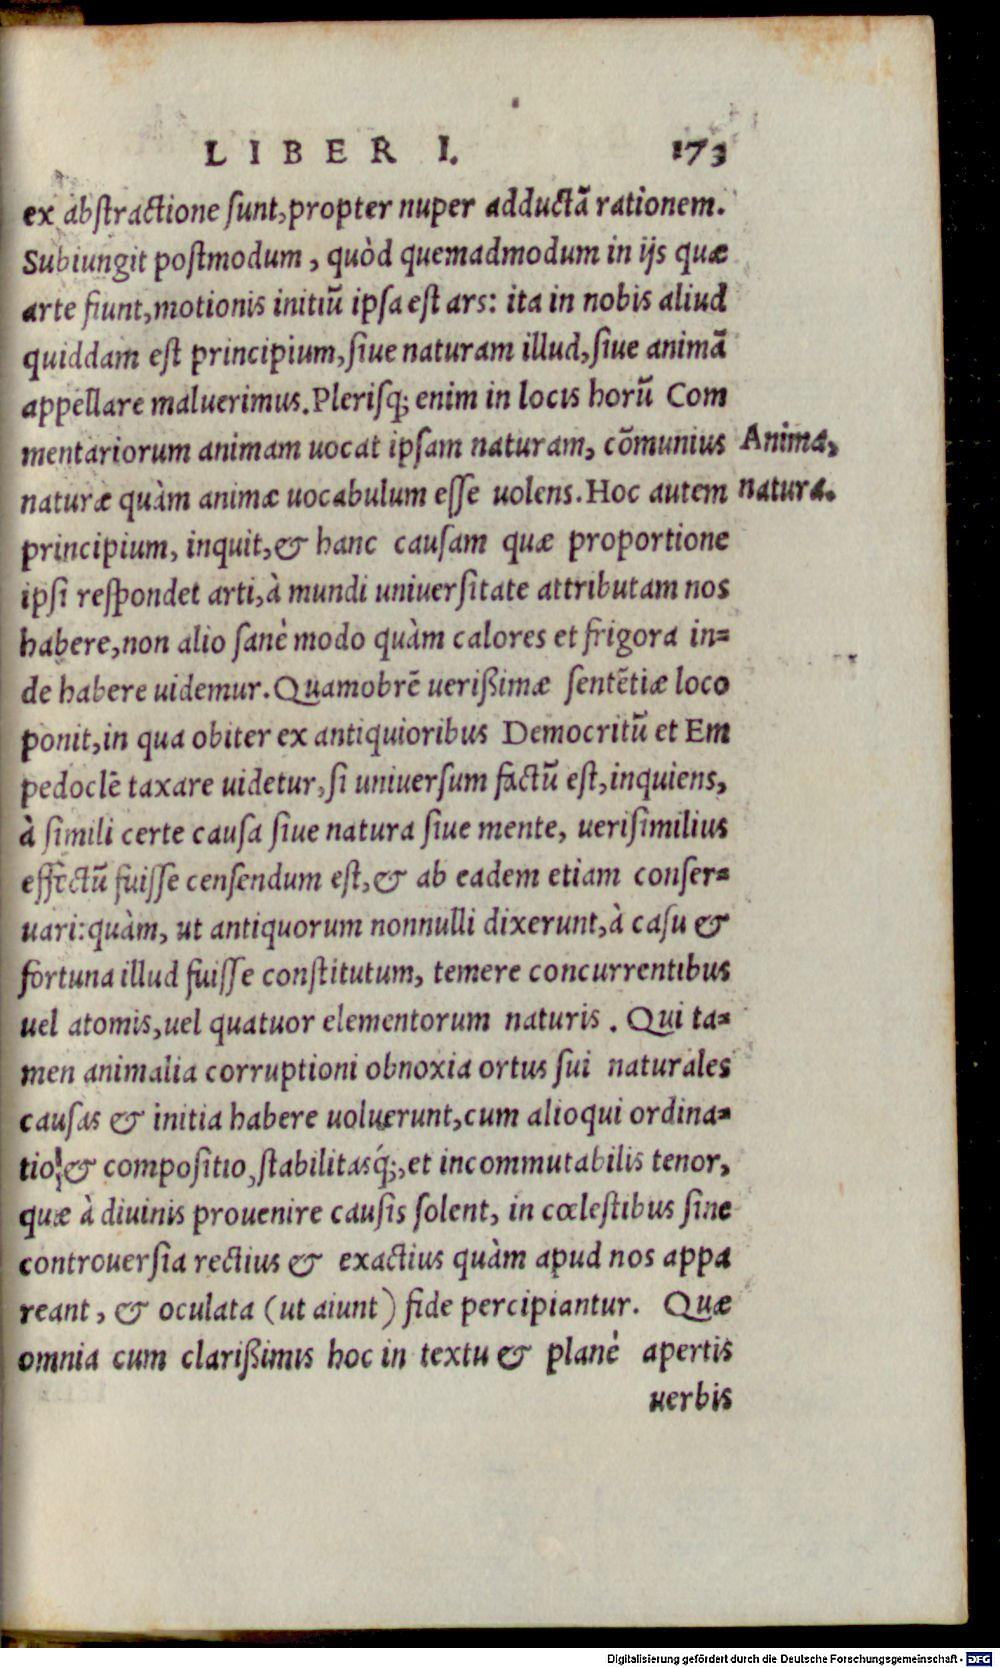 LIBER I. 173
ex abstractione sunt, propter nuper adductā rationem.
Subiungit postmodum, quòd quemadmodum in ijs quæ
arte fiunt, motionis initiū ipsa est ars: ita in nobis aliud
quiddam est principium, siue naturam illud, siue animā
appellare maluerimus. Plerisq; enim in locis horū Com
mentariorum animam uocat ipsam naturam, cōmunius
Anima,
naturæ quàm animæ uocabulum esse uolens. Hoc autem
natura.
principium, inquit, & hanc causam quæ proportione
ipsi respondet arti, à mundi uniuersitate attributam nos
habere, non alio sanè modo quàm calores et frigora in=
de habere uidemur. Quamobrē uerißimæ sentētiæ loco
ponit, in qua obiter ex antiquioribus Democritū et Em
pedoclē taxare uidetur, si uniuersum factū est, inquiens,
à simili certe causa siue natura siue mente, uerisimilius
effectū fuisse censendum est, & ab eadem etiam conser=
uari: quàm, ut antiquorum nonnulli dixerunt, à casu &
fortuna illud fuisse constitutum, temere concurrentibus
uel atomis, uel quatuor elementorum naturis. Qui ta=
men animalia corruptioni obnoxia ortus sui naturales
causas & initia habere uoluerunt, cum alioqui ordina=
tio, & compositio, stabilitasq́;, et incommutabilis tenor,
quæ à diuinis prouenire causis solent, in cœlestibus sine
controuersia rectius & exactius quàm apud nos appa
reant, & oculata (ut aiunt) fide percipiantur. Quæ
omnia cum clarißimis hoc in textu & planè apertis
uerbis
Digitalisierung gefördert durch die Deutsche Forschungsgemeinschaft - DFG